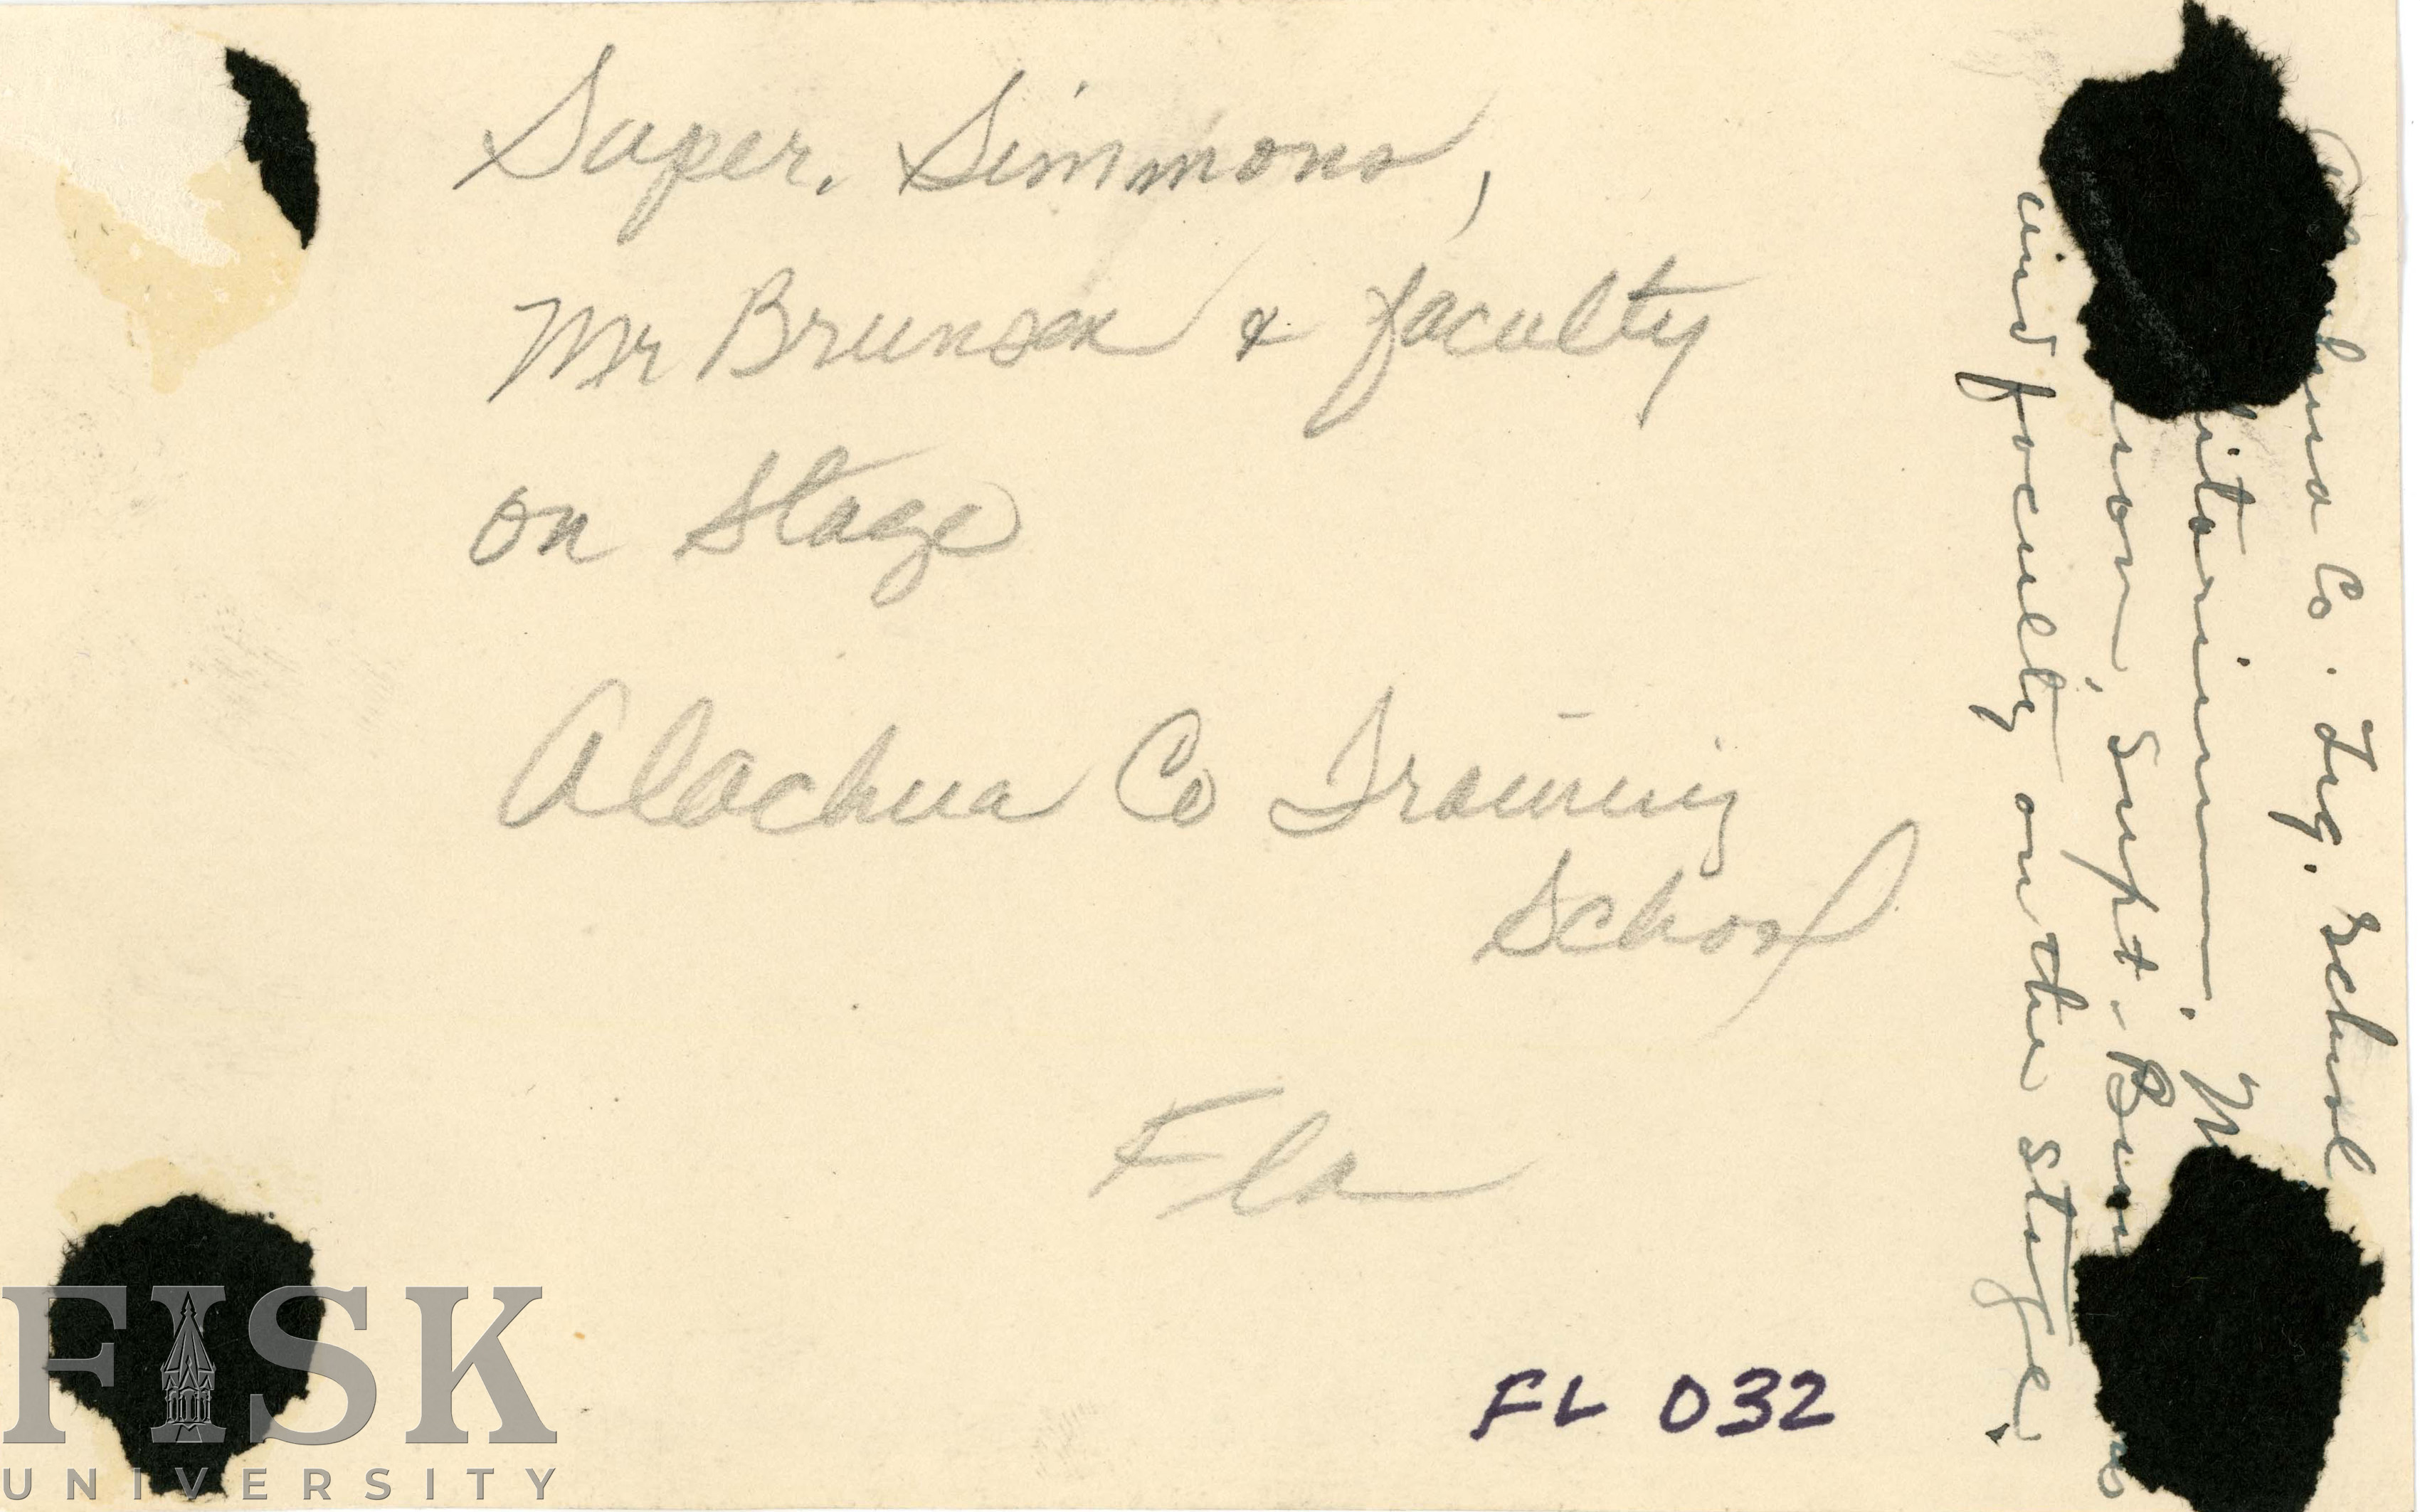 Super. Simmons,
Mr Brunson & faculty
on Stage
Alachua Co Training
School
Fla
FL 032
Co. Tng. School
Supt.
and faculty on the stage.
FISK
UNIVERSITY